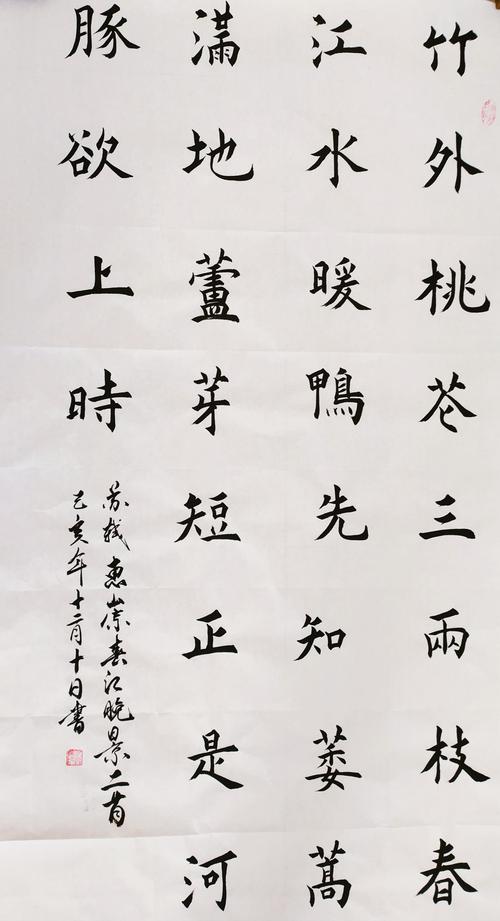 竹外桃花三兩枝春
江水暖鴨先知蒌蒿
滿地蘆芽短正是河
豚欲上時
苏轼惠崇春江晚景二首
己亥年十二月十日書